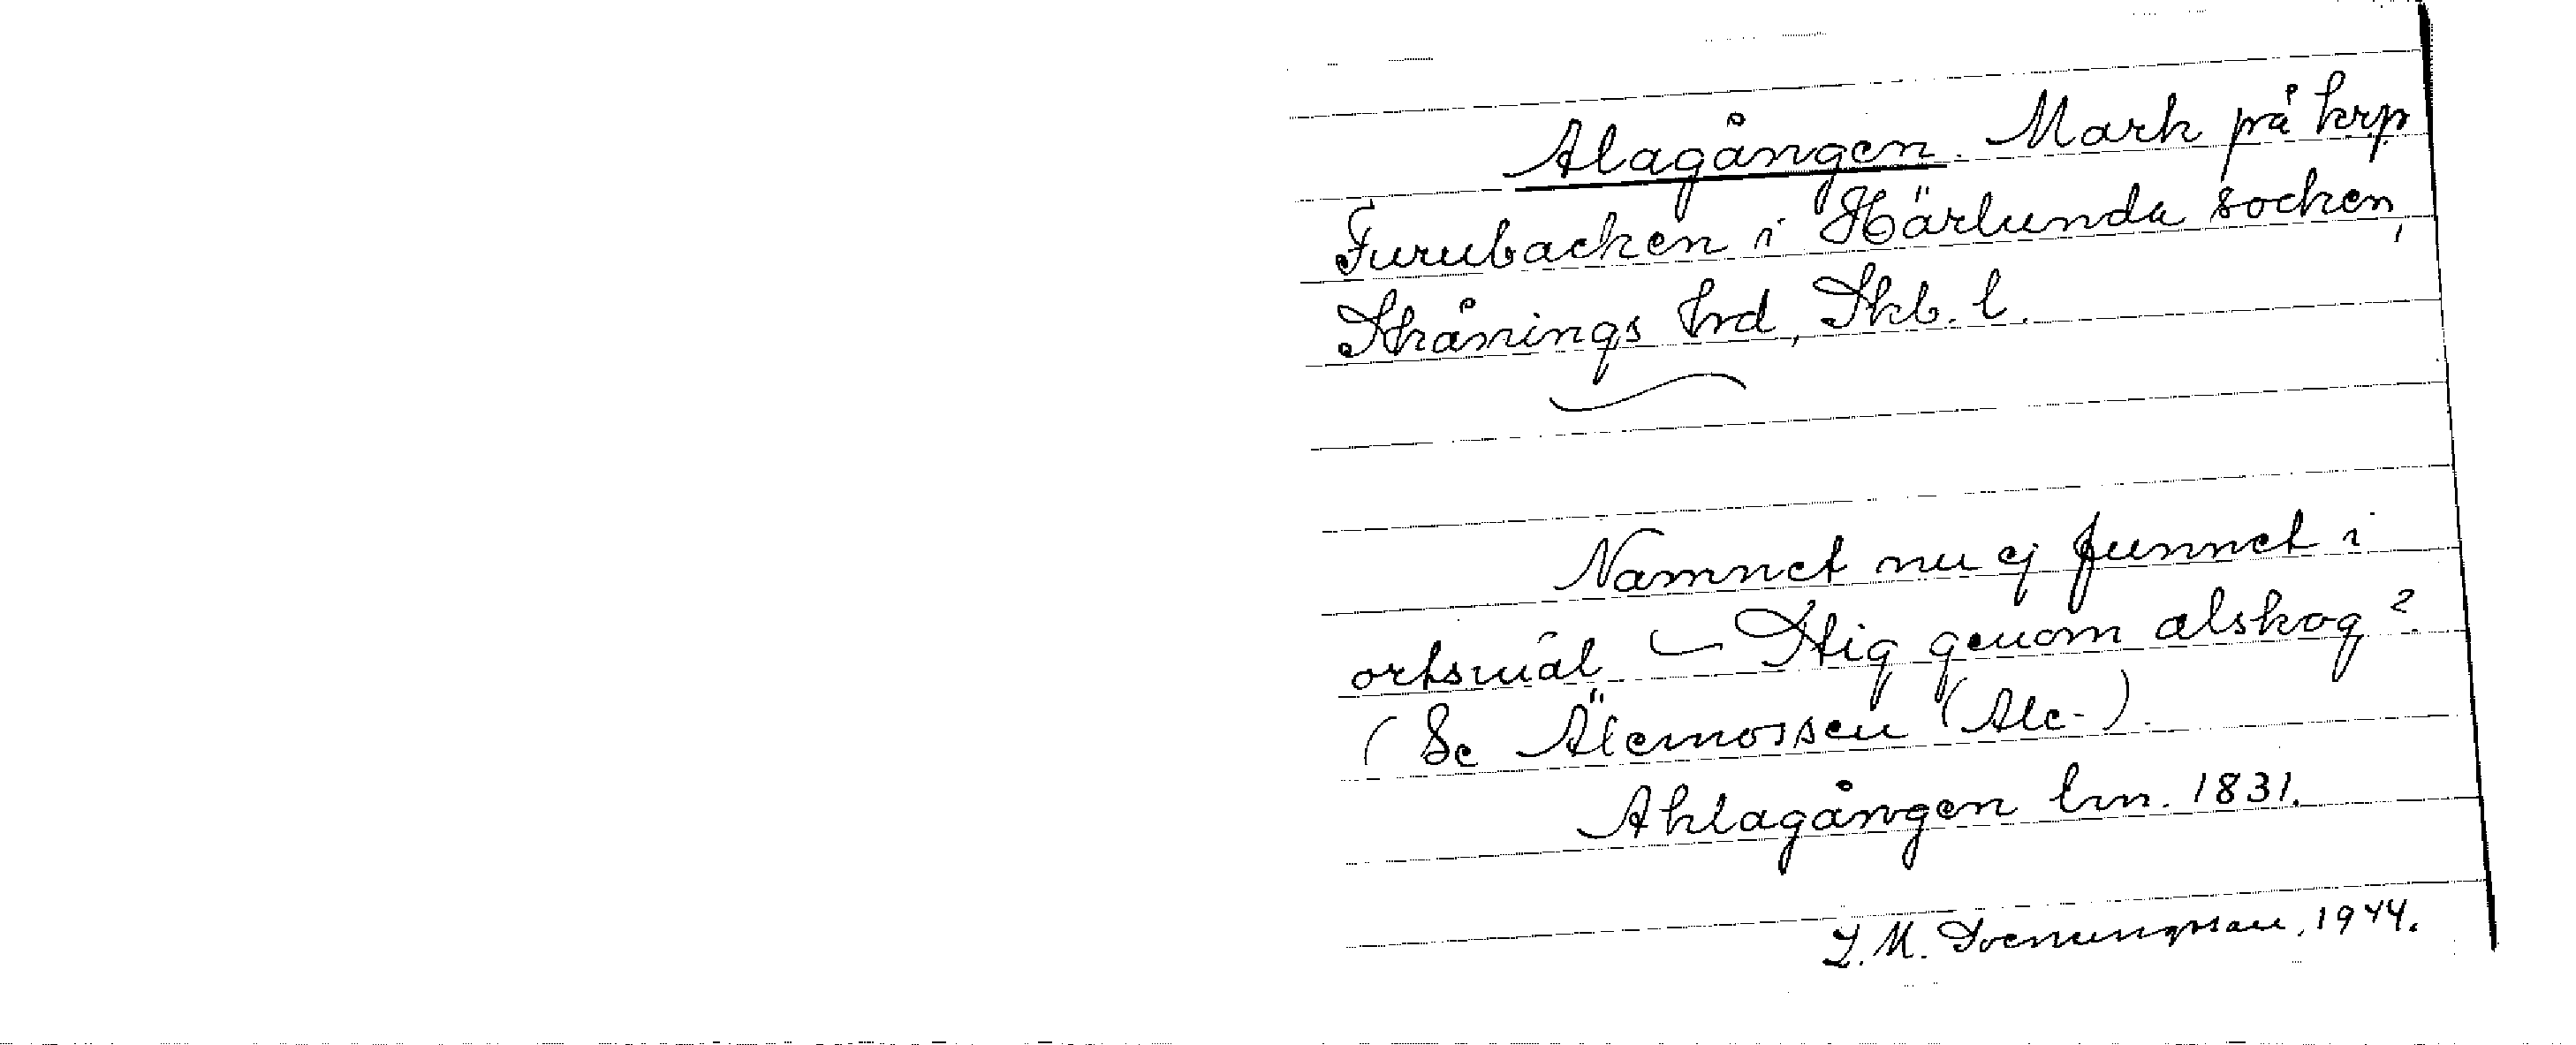 Alagången. Mark på krp
Furubacken i Härlunda socken,
Skånings hrd, Skb. l.
Namnet nu ej funnet i
ortsmål — Stig genom alskog?
(Se Älemossen (Ale-).
Ahlagången lm. 1831.
L. M. 1944.